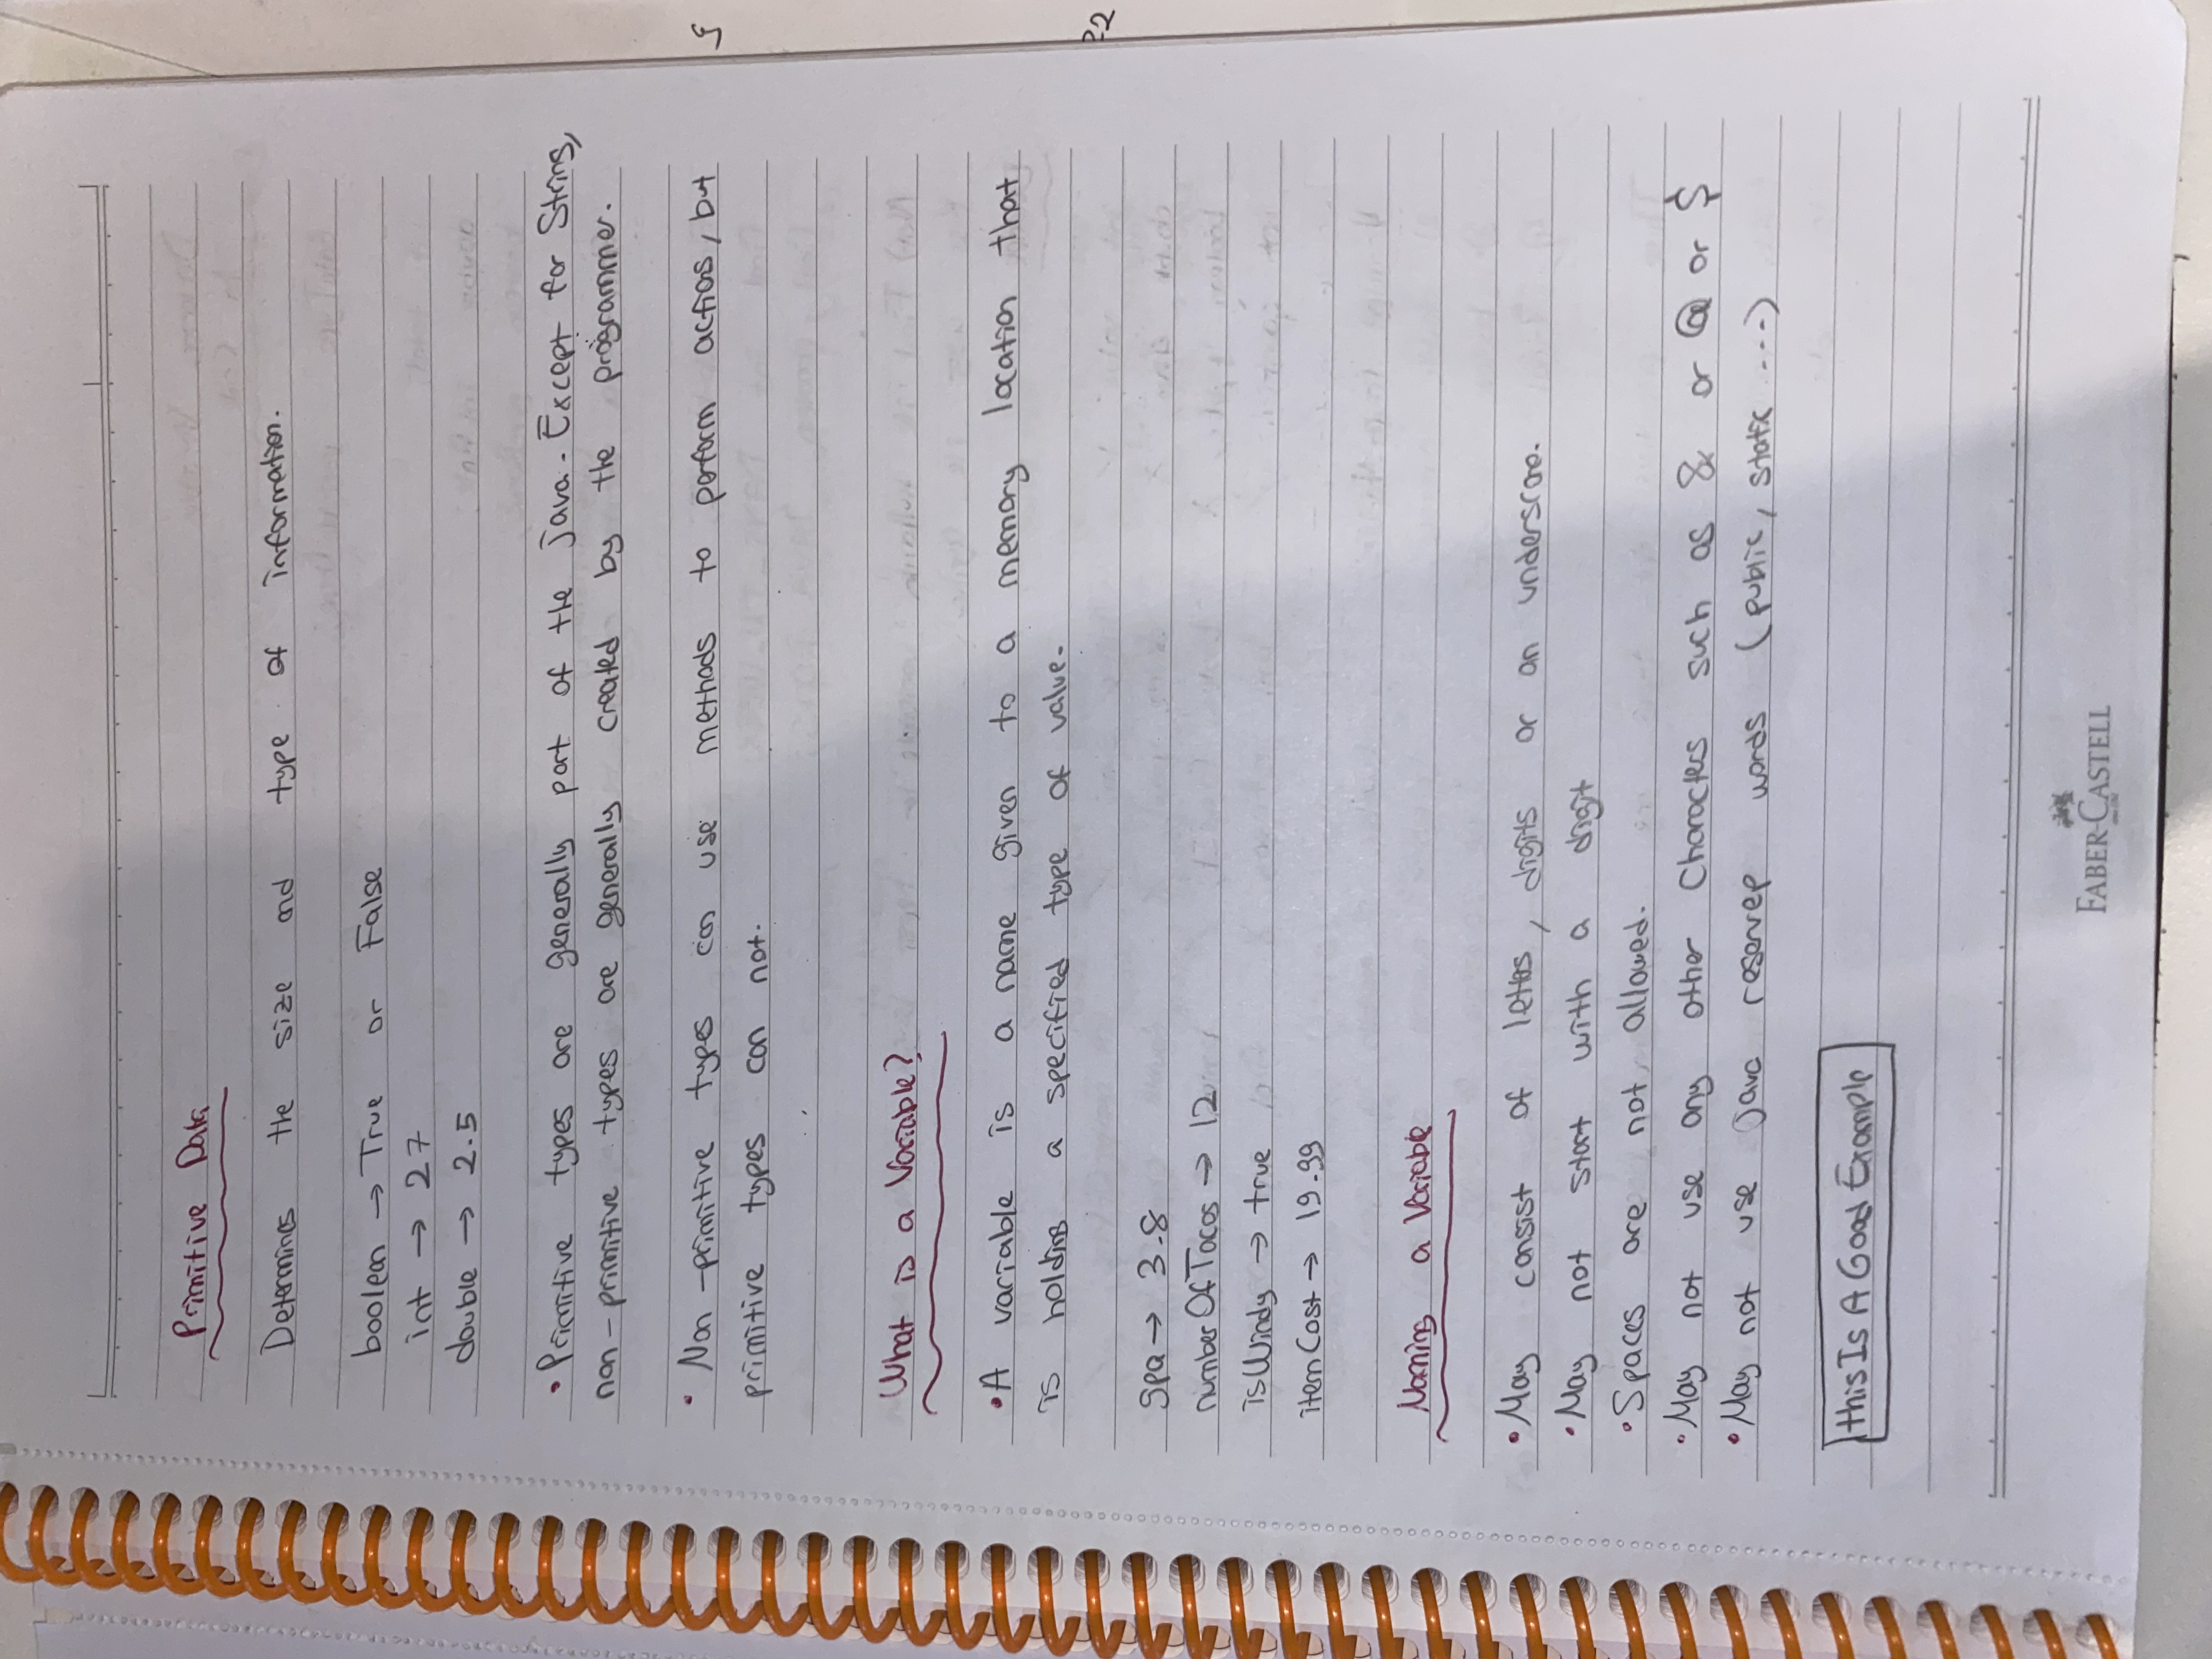 Primitive Data
Determines the size and type of information.
boolean → True or False
int → 27
double → 2.5
• Primitive types are generally part of the java. Except for String,
non-primitive types are generally created by the programmer.
• Non-primitive types can use methods to perform actions, but
primitive types can not.
What is a Variable?
• A variable is a name given to a memory location that
is holding a specified type of value.
gpa → 3.8
numberOfTacos → 12
isWindy → true
itemCost → 19.99
Naming a Variable
• May consist of letters, digits or an underscore.
• May not start with a digit
• Spaces are not allowed.
• May not use any other characters such as & or @ or $
• May not use java reserved words (public, static ...)
thisIsAGoodExample
FABER-CASTELL